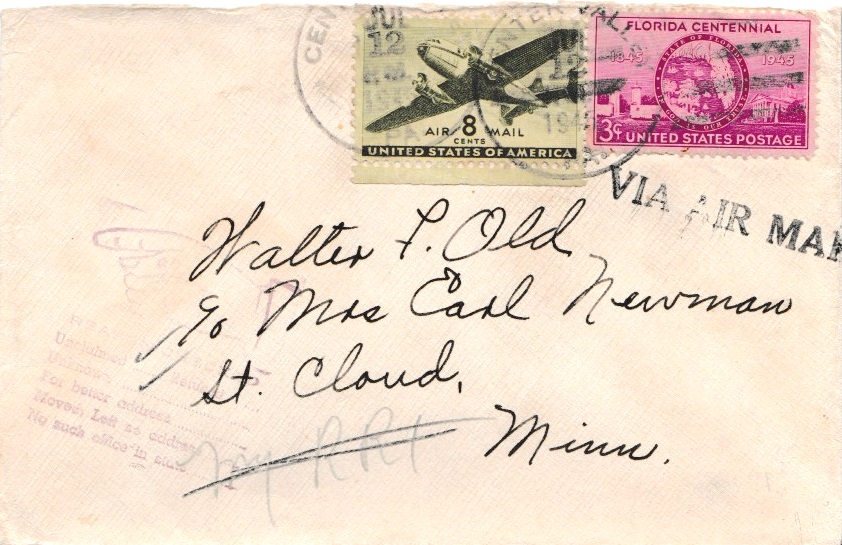 JUL
12
PA.
AIR 8 MAIL
CENTS
UNITED STATES OF AMERICA
FLORIDA CENTENNIAL
STATE OF FLORIDA
IN GOD IS OUR TRUST
1845 1945
3¢ UNITED STATES POSTAGE
VIA AIR MAI
Walter F. Old
% Mrs Earl Newman
St. Cloud,
Minn.
Unclaimed Refused
Unknown
For better address
Moved, Left no address
No such office in state
Try RR1